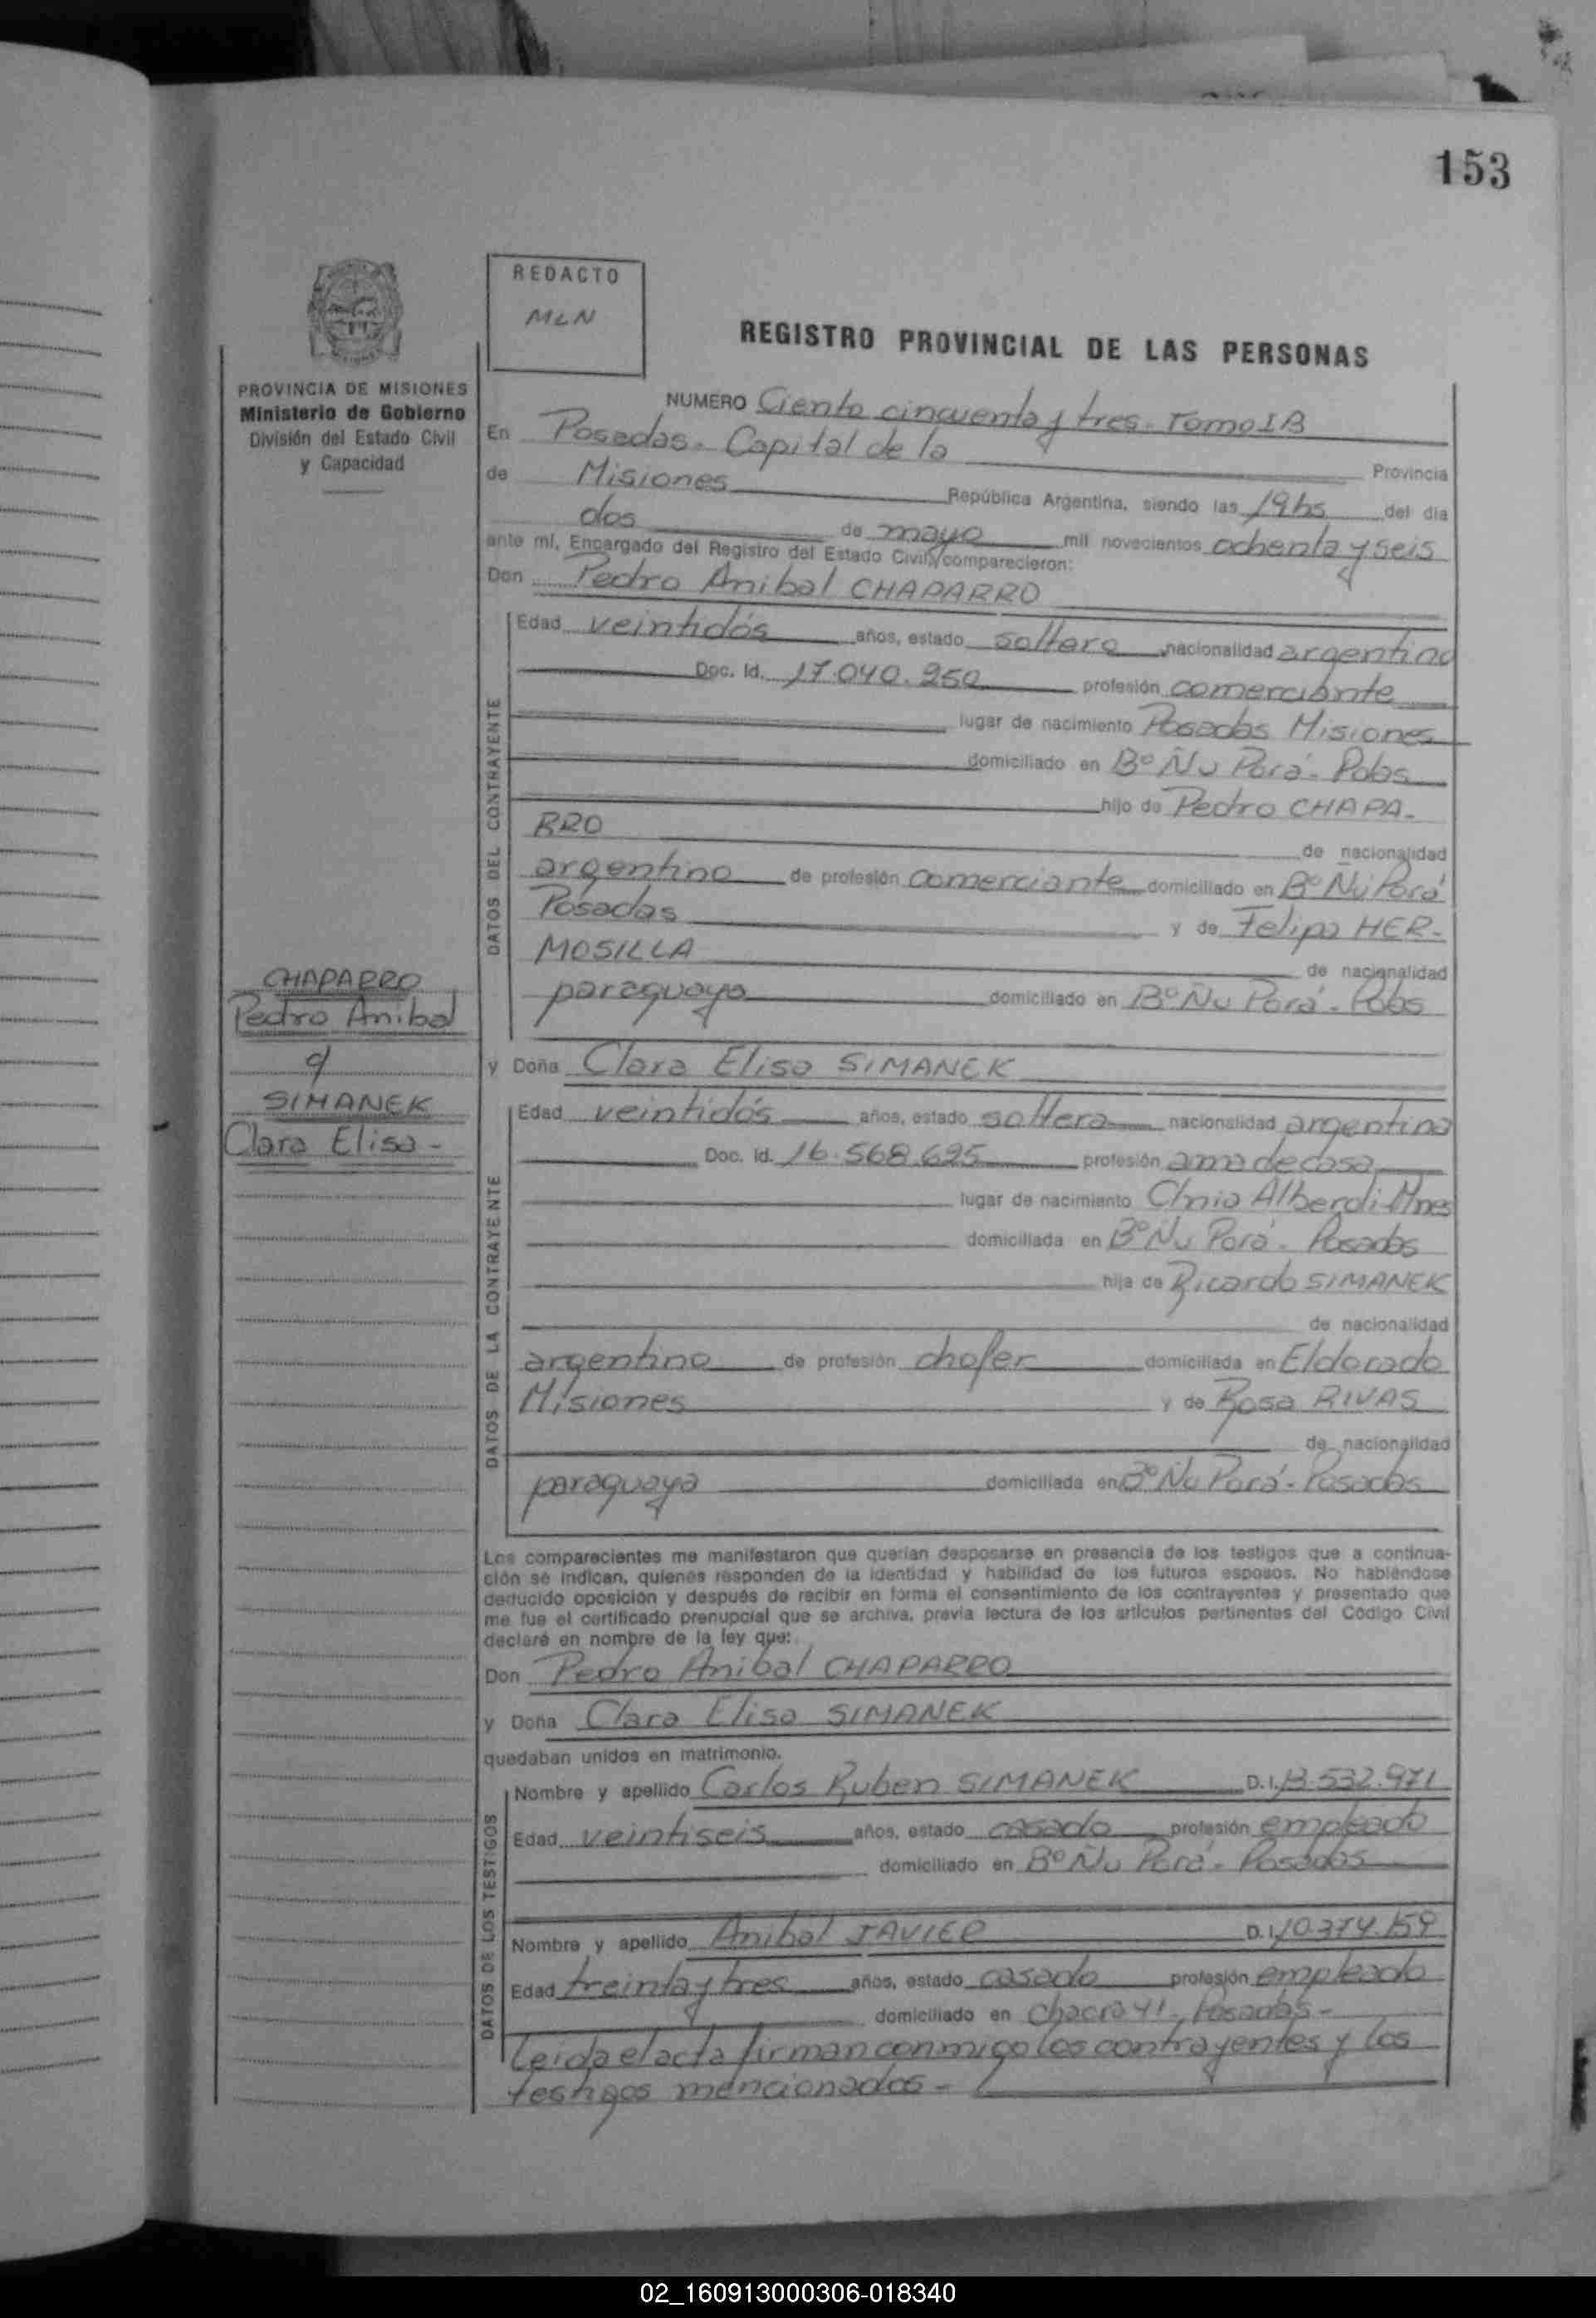 153
REDACTO
MLN
REGISTRO PROVINCIAL DE LAS PERSONAS
PROVINCIA DE MISIONES
Ministerio de Gobierno
División del Estado Civil
y Capacidad
CHAPARRO
Pedro Anibal
c/
SIMANEK
Clara Elisa -
NUMERO Ciento cincuenta y tres - Tomo I B
En Posadas - Capital de la Provincia
de Misiones República Argentina, siendo las 19hs del día
dos de mayo mil novecientos ochenta y seis
ante mí, Encargado del Registro del Estado Civil, comparecieron:
Don Pedro Anibal CHAPARRO
DATOS DEL CONTRAYENTE
Edad veintidós años, estado soltero nacionalidad argentino
Doc. Id. 17.040.250 profesión comerciante
lugar de nacimiento Posadas Misiones
domiciliado en B° Ñu Porá - Pdas
hijo de Pedro CHAPA-
RRO de nacionalidad
argentino de profesión comerciante domiciliado en B° Ñu Porá
Posadas y de Felipa HER-
MOSILLA de nacionalidad
paraguaya domiciliado en B° Ñu Porá - Pdas
y Doña Clara Elisa SIMANEK
DATOS DE LA CONTRAYENTE
Edad veintidós años, estado soltera nacionalidad argentina
Doc. Id. 16.568.695 profesión ama de casa
lugar de nacimiento Clnia Alberdi - Mnes
domiciliada en B° Ñu Porá - Posadas
hija de Ricardo SIMANEK
de nacionalidad
argentino de profesión chofer domiciliada en Eldorado
Misiones y de Rosa RIVAS
de nacionalidad
paraguaya domiciliada en B° Ñu Porá - Posadas
Los comparecientes me manifestaron que querían desposarse en presencia de los testigos que a continua-
ción se indican, quienes responden de la identidad y habilidad de los futuros esposos. No habiéndose
deducido oposición y después de recibir en forma el consentimiento de los contrayentes y presentado que
me fue el certificado prenupcial que se archiva, previa lectura de los artículos pertinentes del Código Civil
declaré en nombre de la ley que:
Don Pedro Anibal CHAPARRO
y Doña Clara Elisa SIMANEK
quedaban unidos en matrimonio.
DATOS DE LOS TESTIGOS
Nombre y apellido Carlos Ruben SIMANEK D.I. 13.532.971
Edad veintiseis años, estado casado profesión empleado
domiciliado en B° Ñu Porá - Posadas
Nombre y apellido Anibal JAVIER D.I. 10.374.159
Edad treinta y tres años, estado casado profesión empleado
domiciliado en chacra 41 - Posadas -
Leida el acta firman conmigo los contrayentes y los
testigos mencionados -
02_160913000306-018340